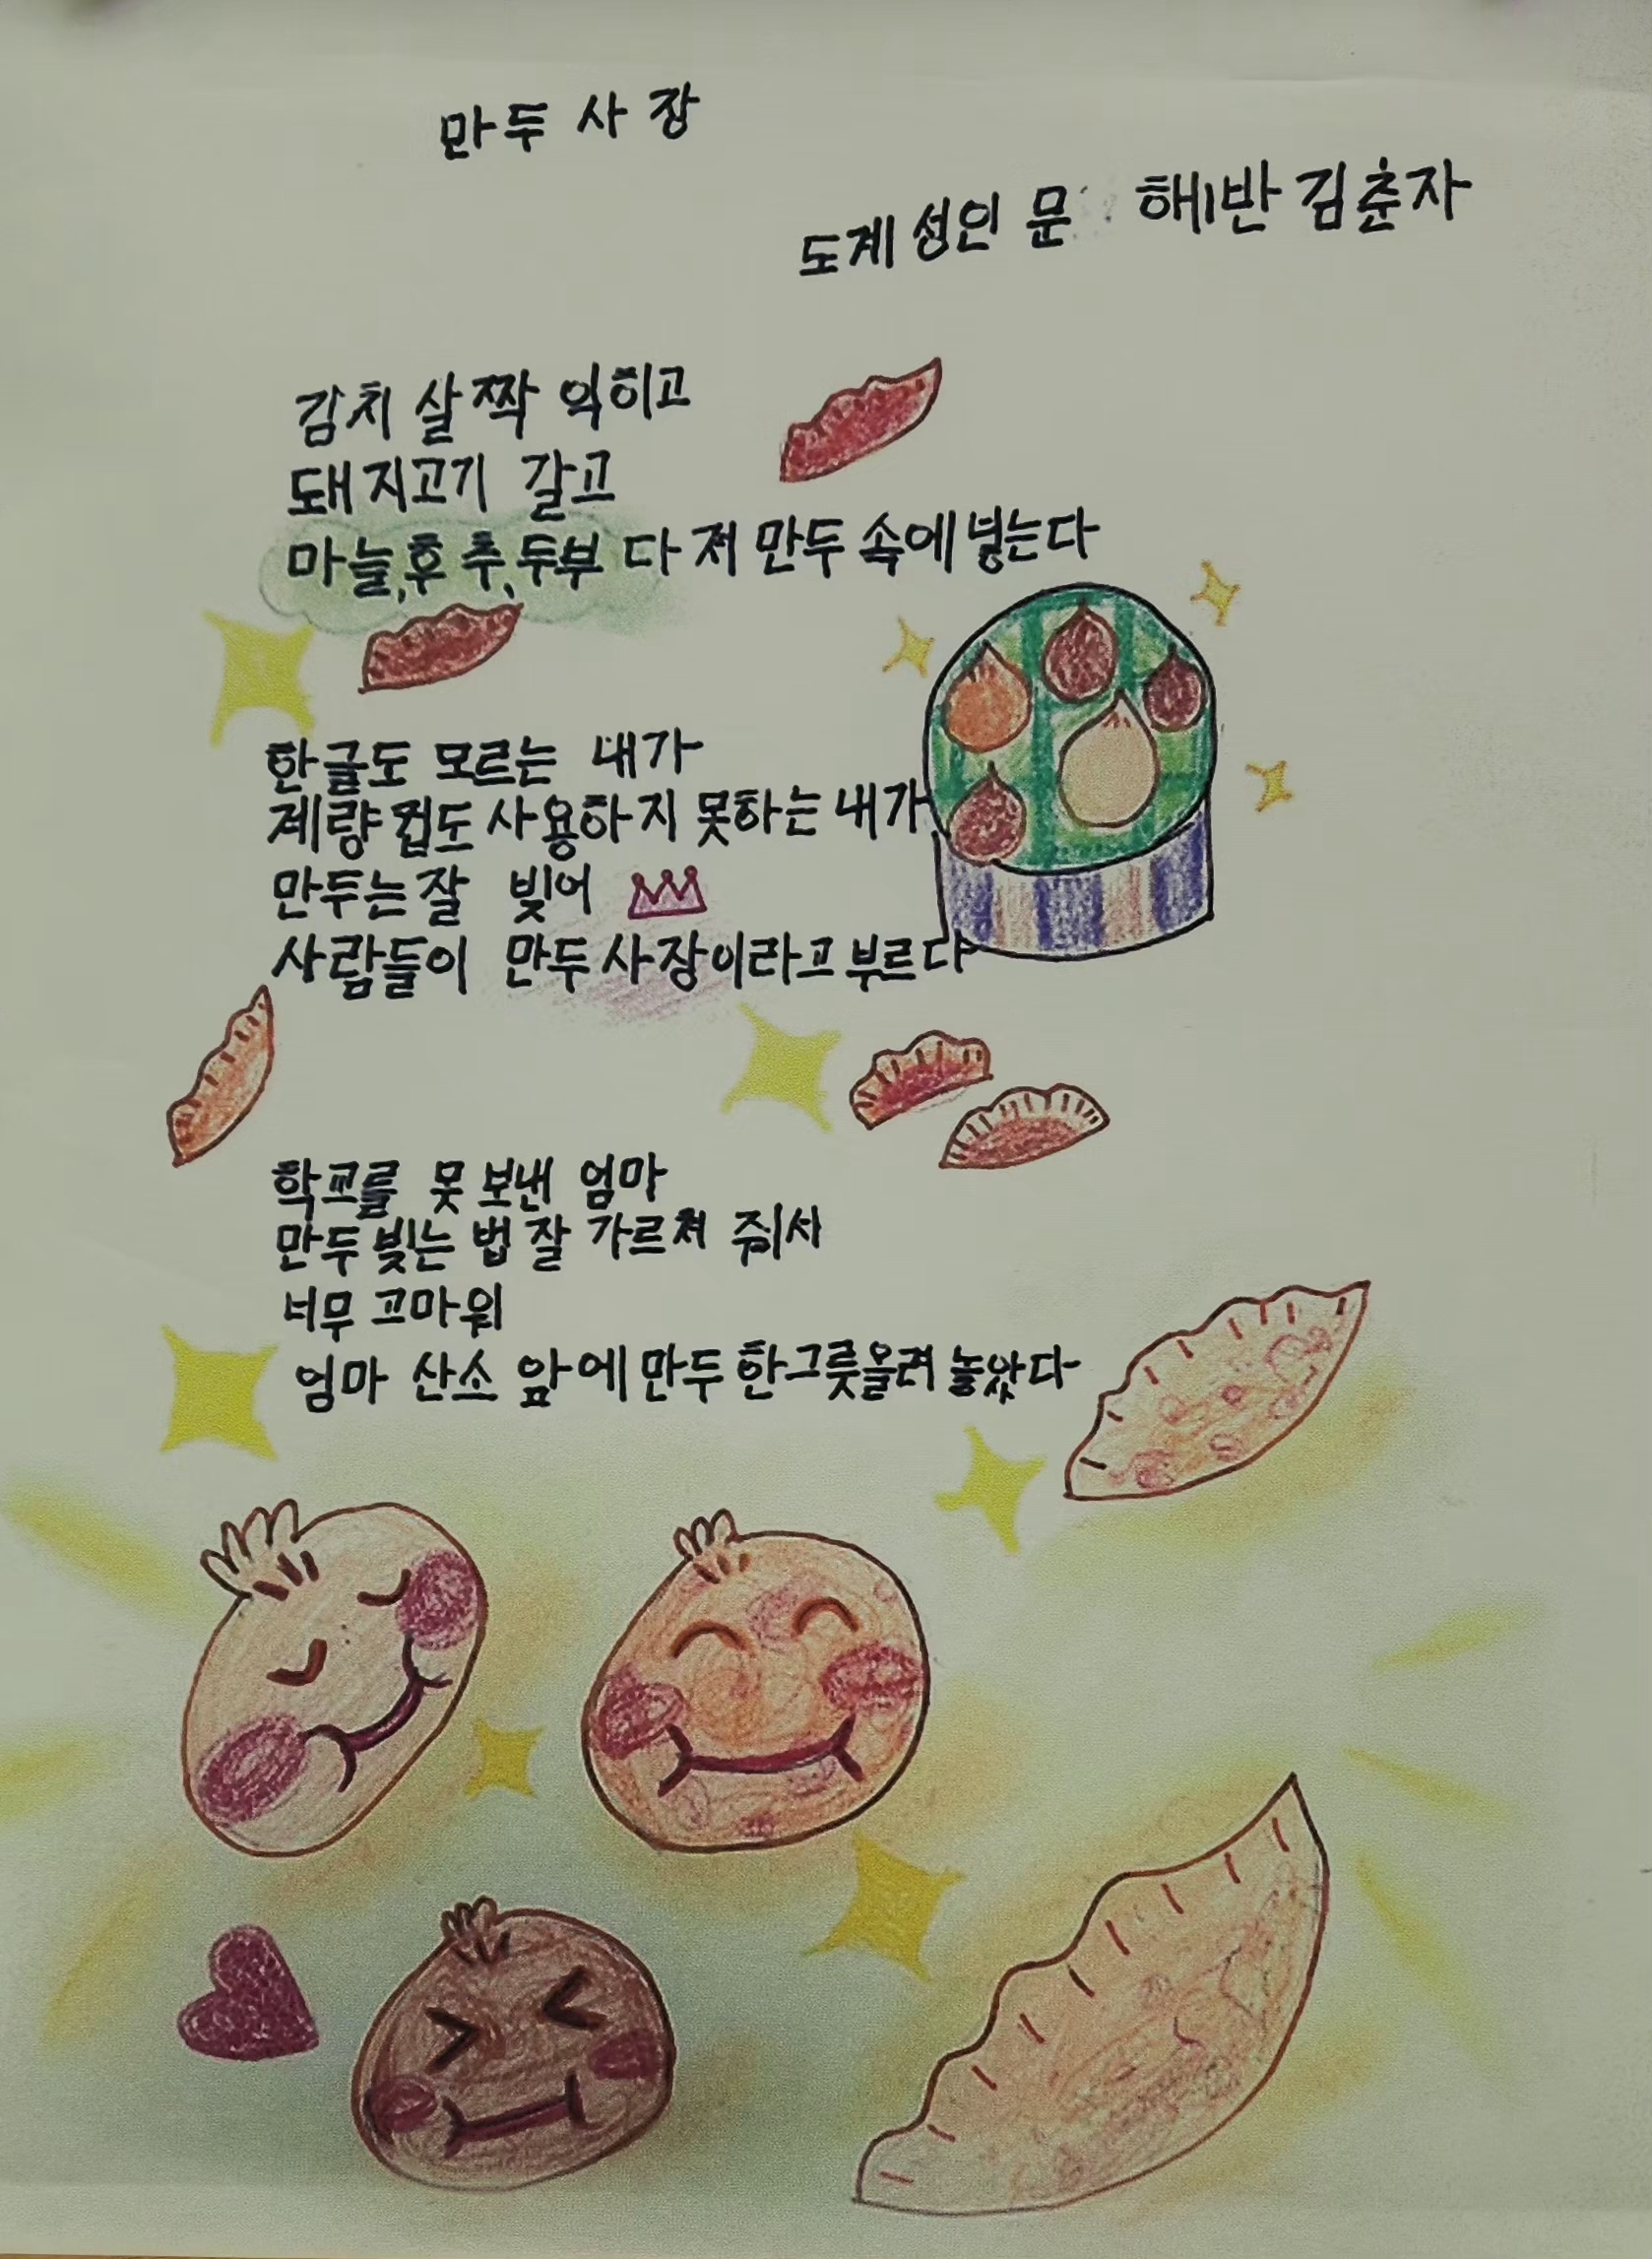 만두 사장
도계 성인 문 해반 김춘자
김치 살짝 익히고
돼지고기 갈고
마늘,후추,두부 다져 만두 속에 넣는다
한글도 모르는 내가
계량컵도 사용하지 못하는 내가
만두는 잘 빚어
사람들이 만두 사장이라고 부르다
학교를 못 보낸 엄마
만두 빚는 법 잘 가르쳐 줘서
너무 고마워
엄마 산소 앞에 만두 한그릇을려 놓았다